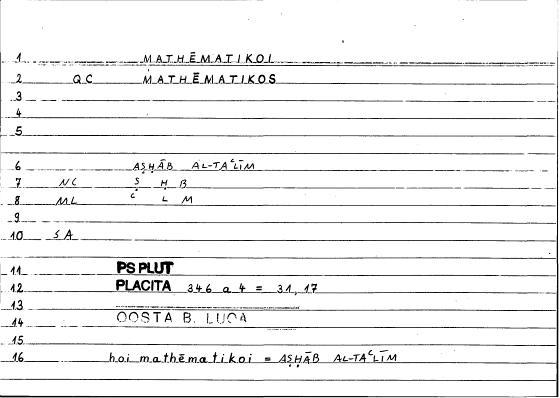 1 MATHĒMATIKOI
2 QC MATHĒMATIKOS
3
4
5
6 AṢḤĀB AL-TAʿLĪM
7 NC Ṣ Ḥ B
8 ML ʿ L M
9
10 SA
11 PS PLUT
12 PLACITA 346 a 4 = 31, 17
13
14 QOSTA B. LUQA
15
16 hoi mathēmatikoi = AṢḤĀB AL-TAʿLĪM